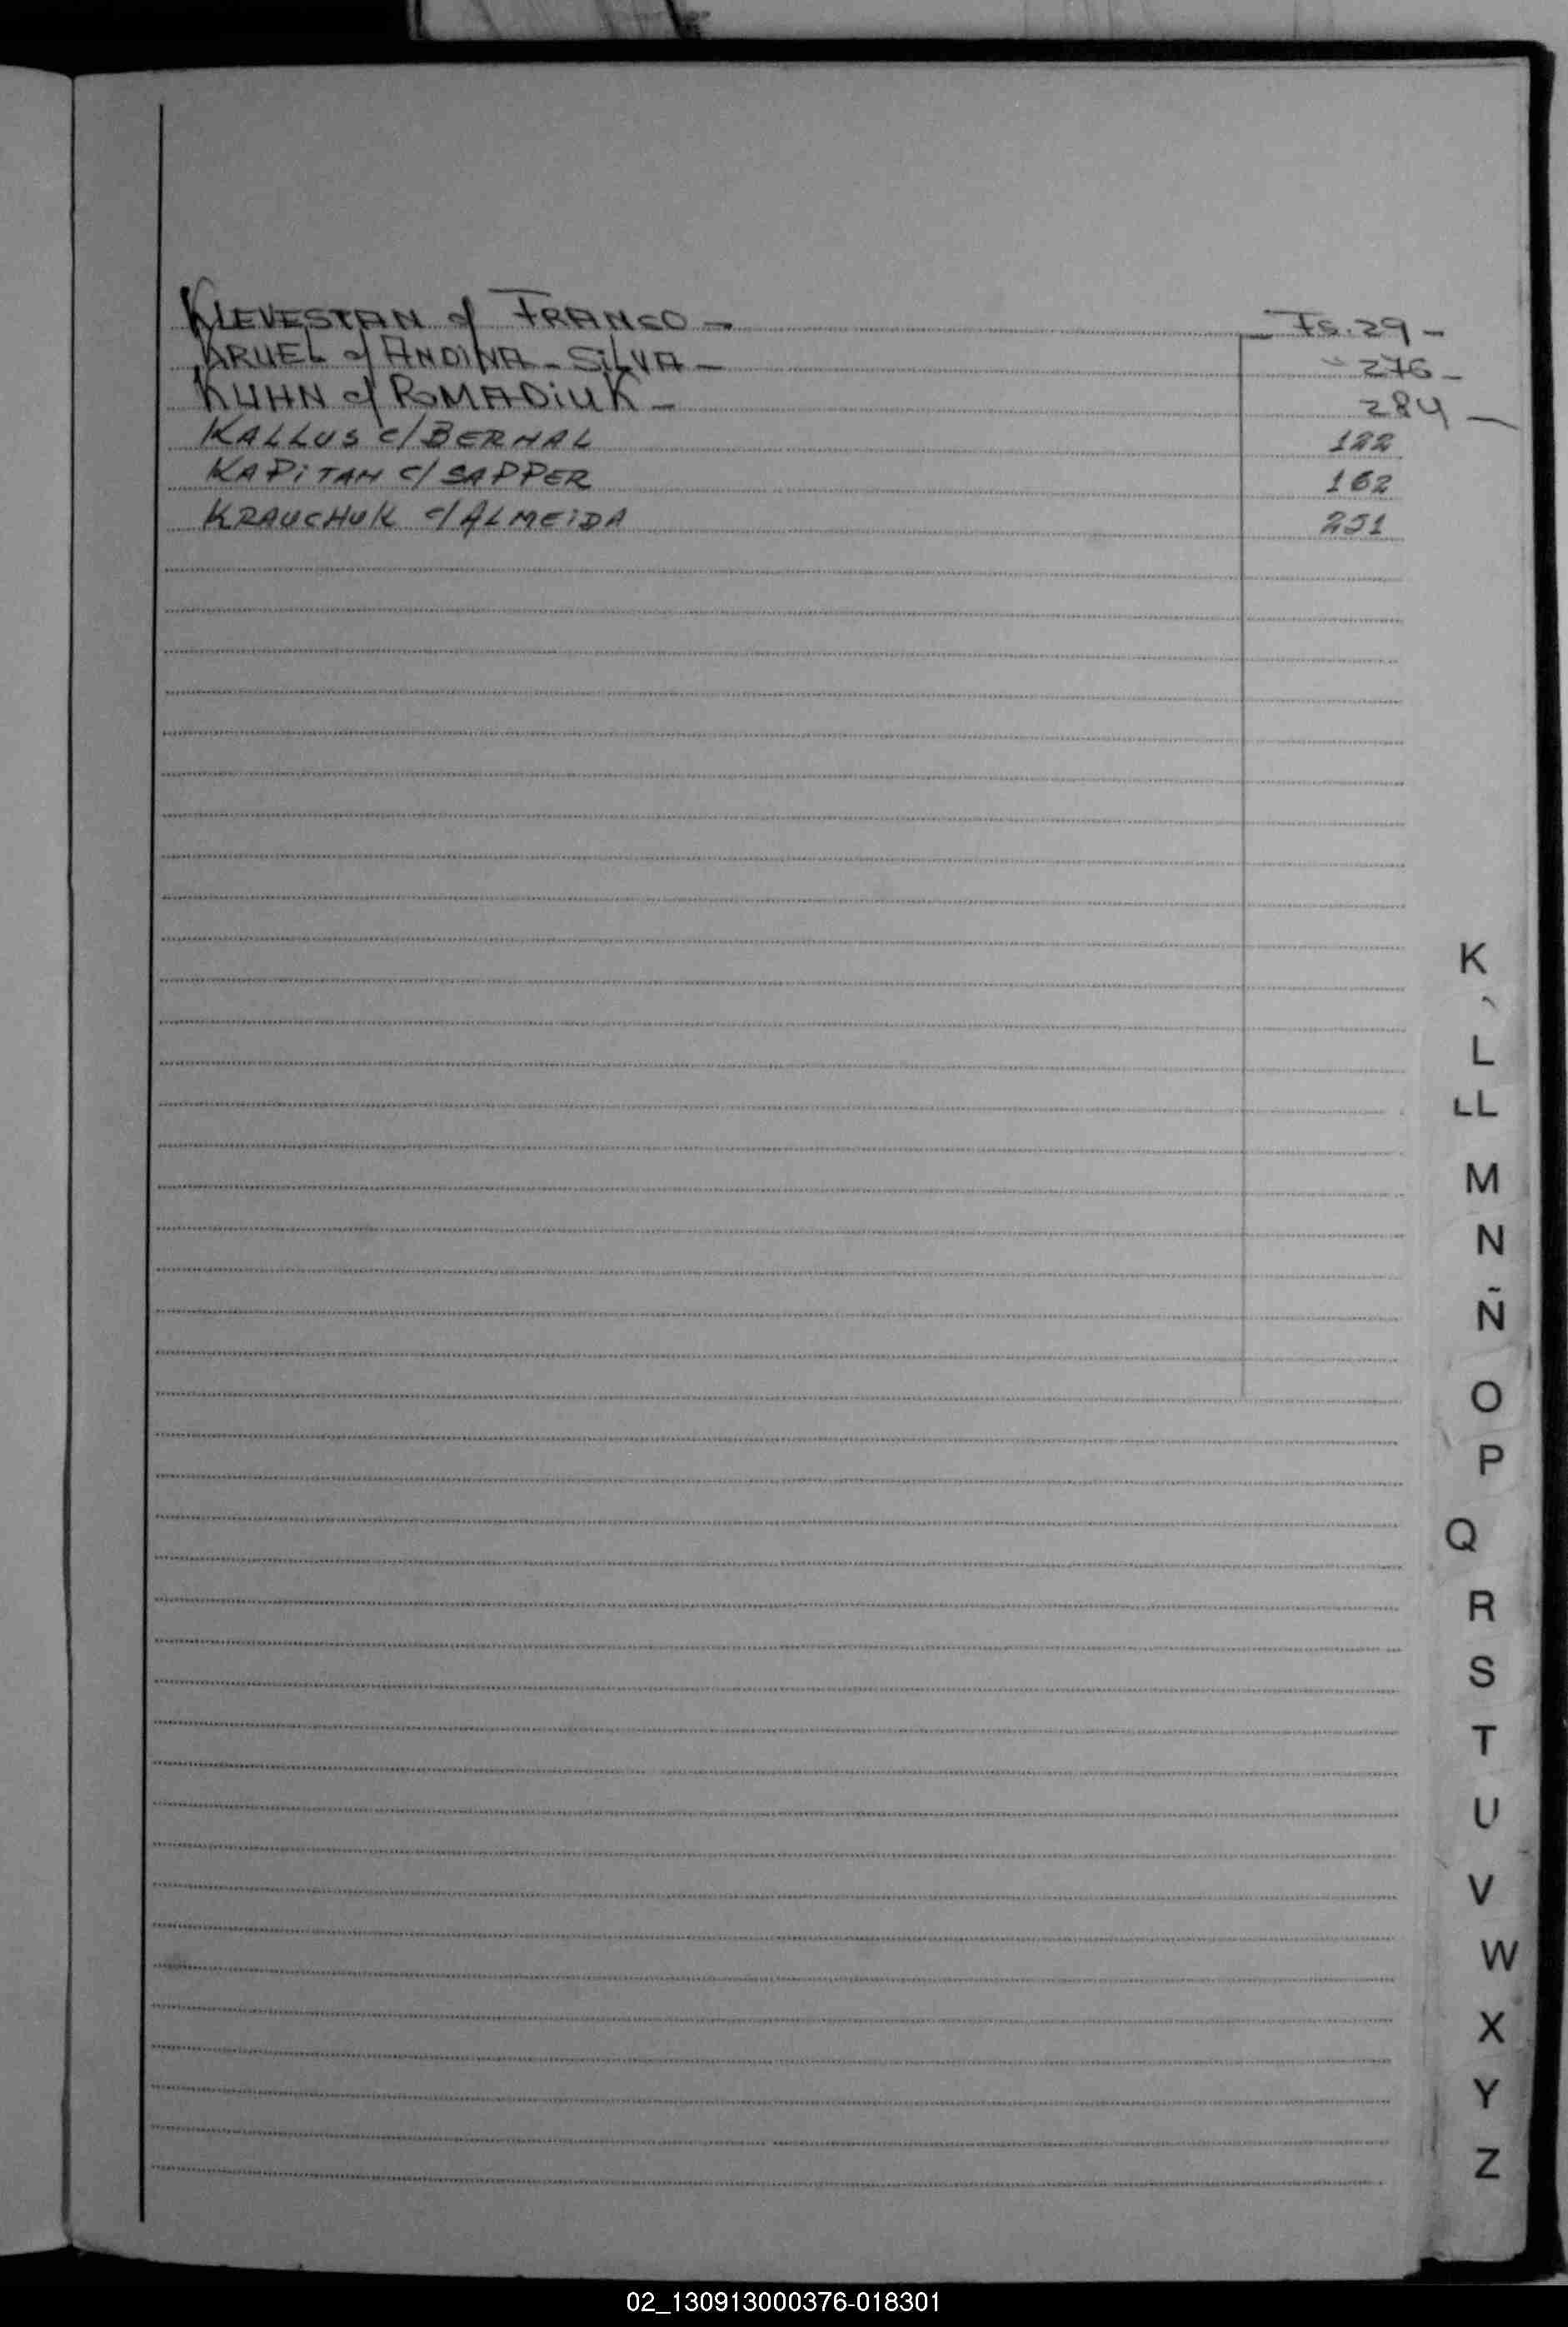 KLEVESTAN c/ FRANCO - Fs. 29 -
KRUEL c/ ANDINA - SILVA - " 276 -
KUHN c/ ROMADIUK - 284 -
KALLUS c/ BERNAL 122
KAPITAN c/ SAPPER 162
KRAUCHUK c/ ALMEIDA 251
K
L
LL
M
N
Ñ
O
P
Q
R
S
T
U
V
W
X
Y
Z
02_130913000376-018301